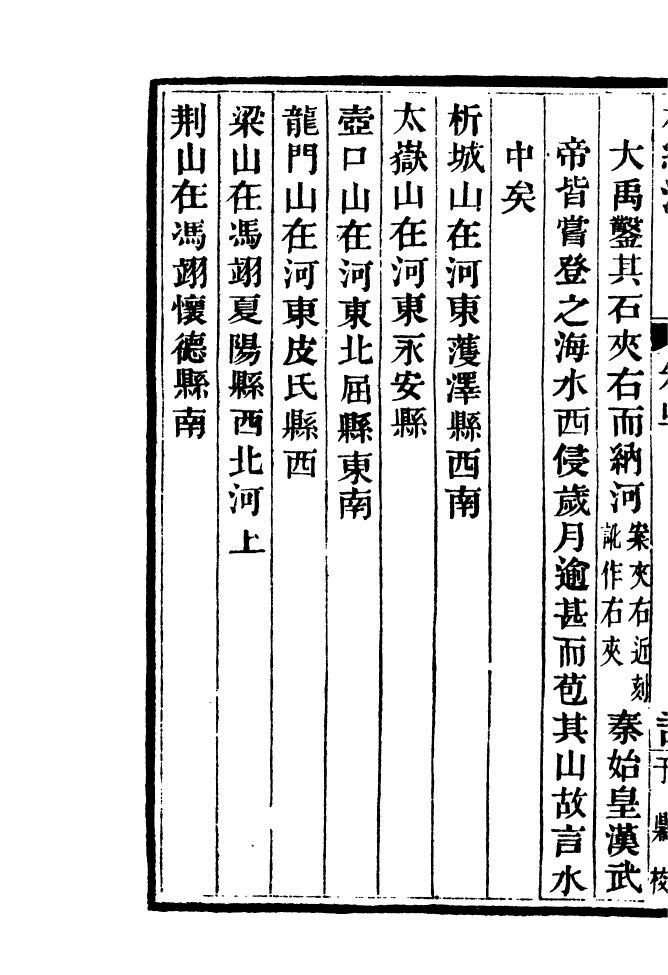 大禹鑿其石夾右而納河案夾右近刻訛作右夾秦始皇漢武
帝皆嘗登之海水西侵歲月逾甚而苞其山故言水
中矣
析城山在河東濩澤縣西南
太嶽山在河東永安縣
壺口山在河東北屈縣東南
龍門山在河東皮氏縣西
梁山在馮翊夏陽縣西北河上
荆山在馮翊懷德縣南